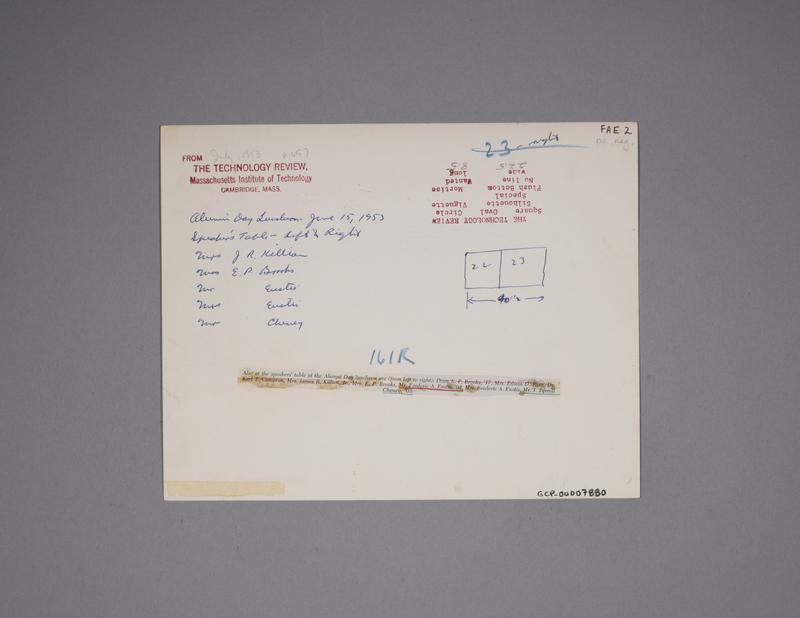 FAE 2
no neg.
23 - right
FROM July, 1953
THE TECHNOLOGY REVIEW,
Massachusetts Institute of Technology
CAMBRIDGE, MASS.
THE TECHNOLOGY REVIEW
Square Oval Circle
Silhouette Vignette
Special
Flush Bottom Mortise
No line Wanted
wide long
22.5 8.5
Alumni Day Luncheon June 15, 1953
Speaker's Table - Left to Right
Mrs J. R. Killian
Mrs E. P. Brooks
Mr Eustis
Mrs Eustis
Mr Cheney
22 23
161R
Also at the speakers' table at the Alumni Day luncheon are (from left to right): Dean E. P. Brooks, '17, Mrs. Edwin D. Ryer, Dr.
Karl T. Compton, Mrs. James R. Killian, Jr., Mrs. E. P. Brooks, Mr. Frederic A. Eustis, Mrs. Frederic A. Eustis, Mr. T. Tipson
Cheney,
GCP-00007880